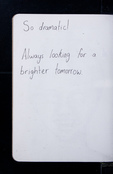 So dramatic!
Always looking for a
brighter tomorrow